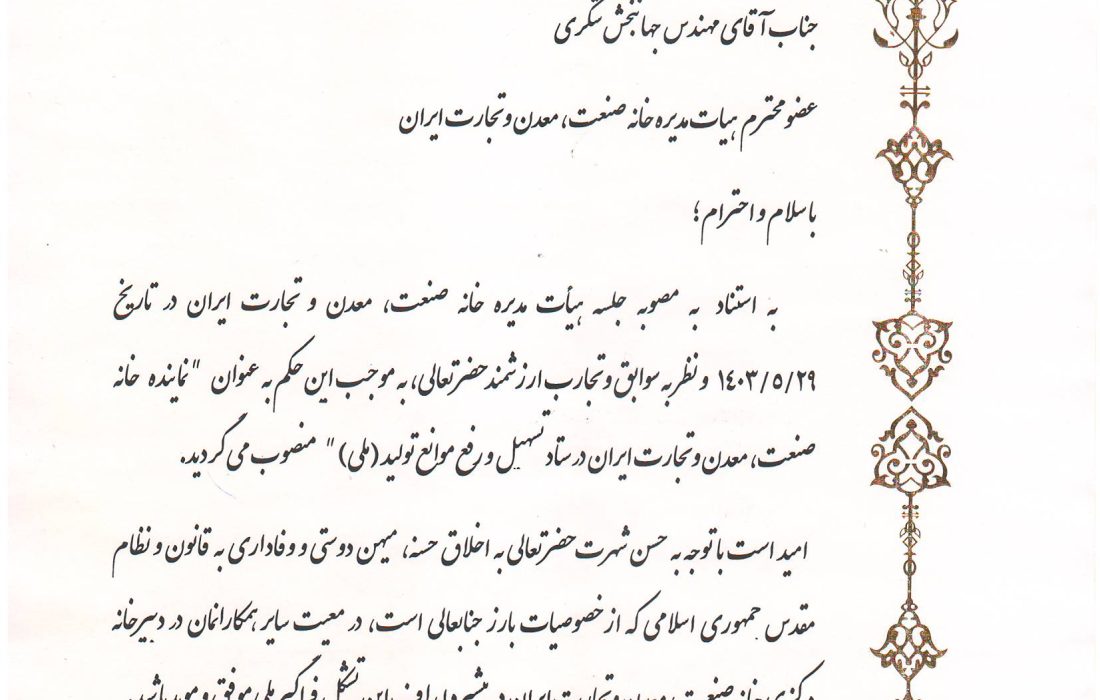 جناب آقای مهندس جهانبخش شکری
عضو محترم هیات مدیره خانه صنعت، معدن و تجارت ایران
باسلام و احترام؛
به استناد به مصوبه جلسه هیأت مدیره خانه صنعت، معدن و تجارت ایران در تاریخ
۱٤۰۳/٥/۲۹ و نظر به سوابق و تجارب ارزشمند حضرتعالی، به موجب این حکم به عنوان " نماینده خانه
صنعت، معدن و تجارت ایران در ستاد تسهیل و رفع موانع تولید (ملی) " منصوب می گردید.
امید است باتوجه به حسن شهرت حضرتعالی به اخلاق حسنه، میهن دوستی و وفاداری به قانون و نظام
مقدس جمهوری اسلامی که از خصوصیات بارز جنابعالی است، در معیت سایر همکارانمان در دبیرخانه
مرکزی خانه صنعت، معدن و تجارت ایران در پیشبرد اهداف این تشکل فراگیر ملی موفق و موید باشید.